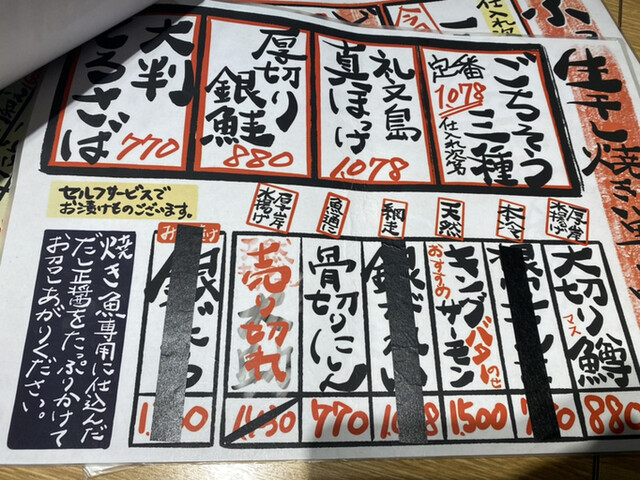 生干し焼き
ごちそう三種
定番
1078
仕入れ次第
礼文島
真ほっけ
1,078
厚切り
銀鮭
880
大判
とろさば
770
セルフサービスで
お漬けものございます。
厚岸
水揚げ
大切り鱒
マス
880
天然
キングサーモン
おすすめ
バターのせ
1500
網走
骨切りにしん
770
厚岸
水揚げ
売り切れ
1,150
銀だら
焼き魚専用に仕込んだ
だし正醤をたっぷりかけて
お召しあがりください。